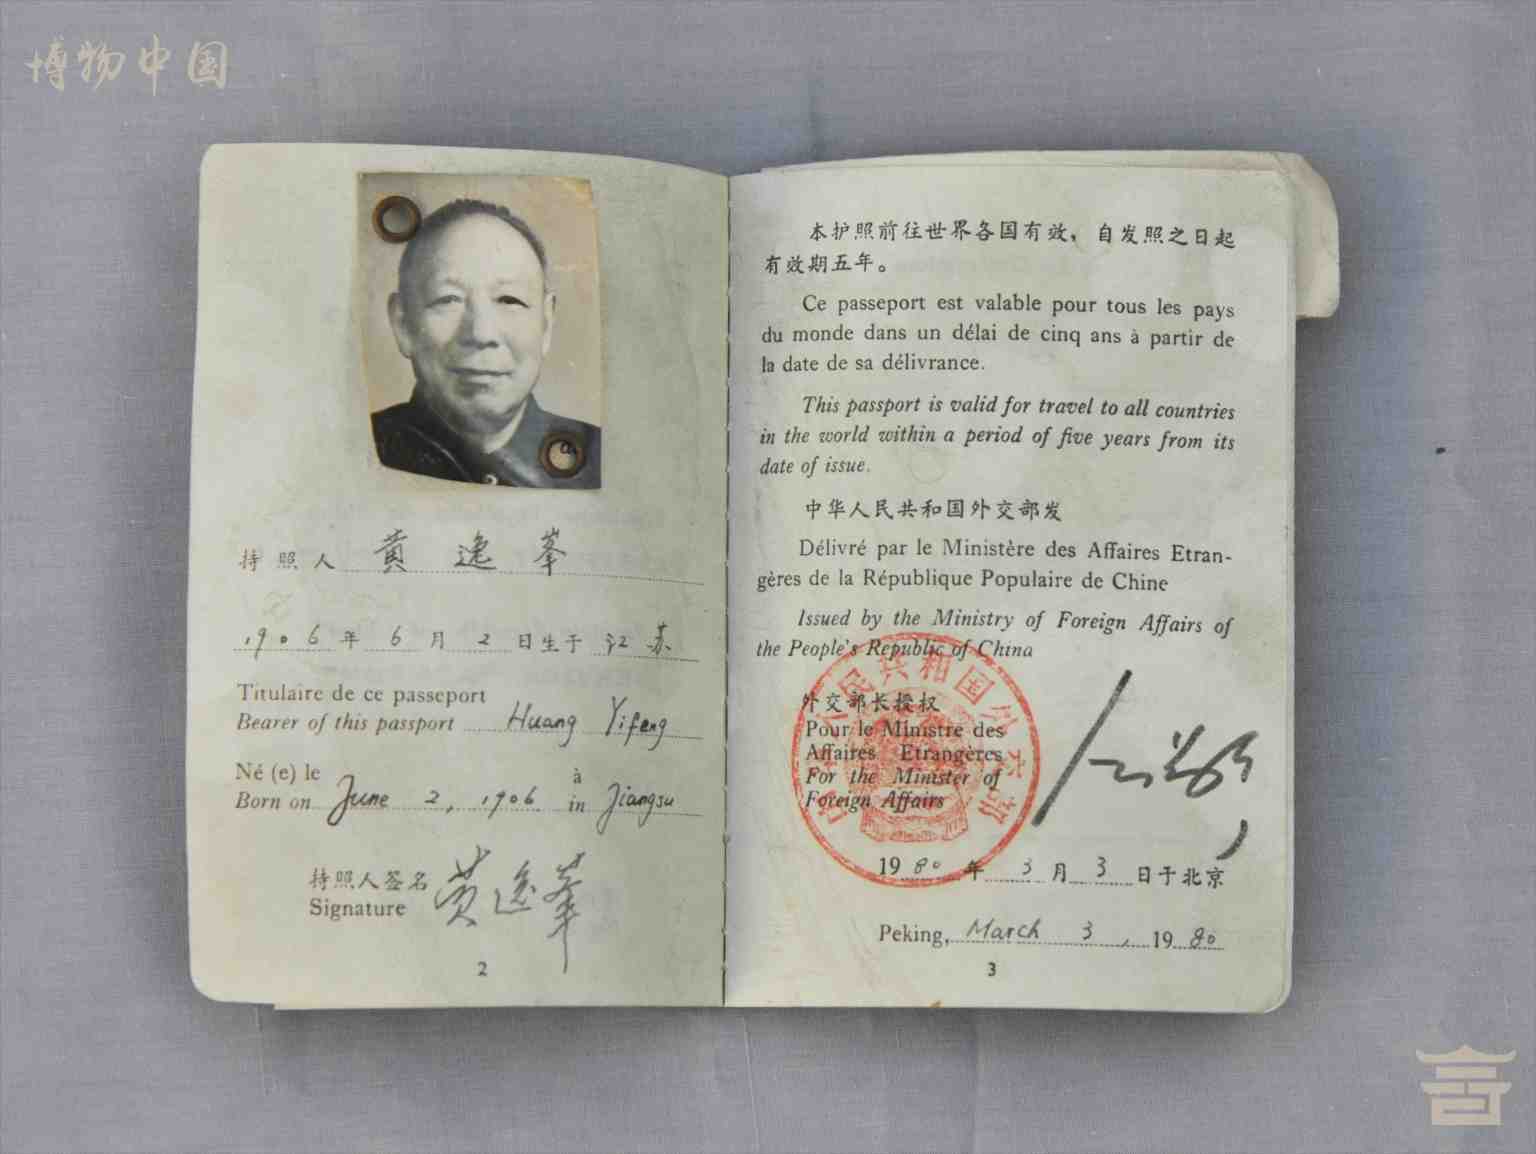 博物中国
持照人 黄逸峯
1906年6月2日生于江苏
Titulaire de ce passeport
Bearer of this passport Huang Yifeng
Né (e) le à
Born on June 2, 1906 in Jiangsu
持照人签名 黄逸峯
Signature
2
本护照前往世界各国有效，自发照之日起
有效期五年。
Ce passeport est valable pour tous les pays
du monde dans un délai de cinq ans à partir de
la date de sa délivrance.
This passport is valid for travel to all countries
in the world within a period of five years from its
date of issue.
中华人民共和国外交部发
Délivré par le Ministère des Affaires Etran-
gères de la République Populaire de Chine
Issued by the Ministry of Foreign Affairs of
the People's Republic of China
中华人民共和国外交部
外交部长授权
Pour le Ministre des
Affaires Etrangères
For the Minister of
Foreign Affairs
1980年3月3日于北京
Peking, March 3, 1980
3